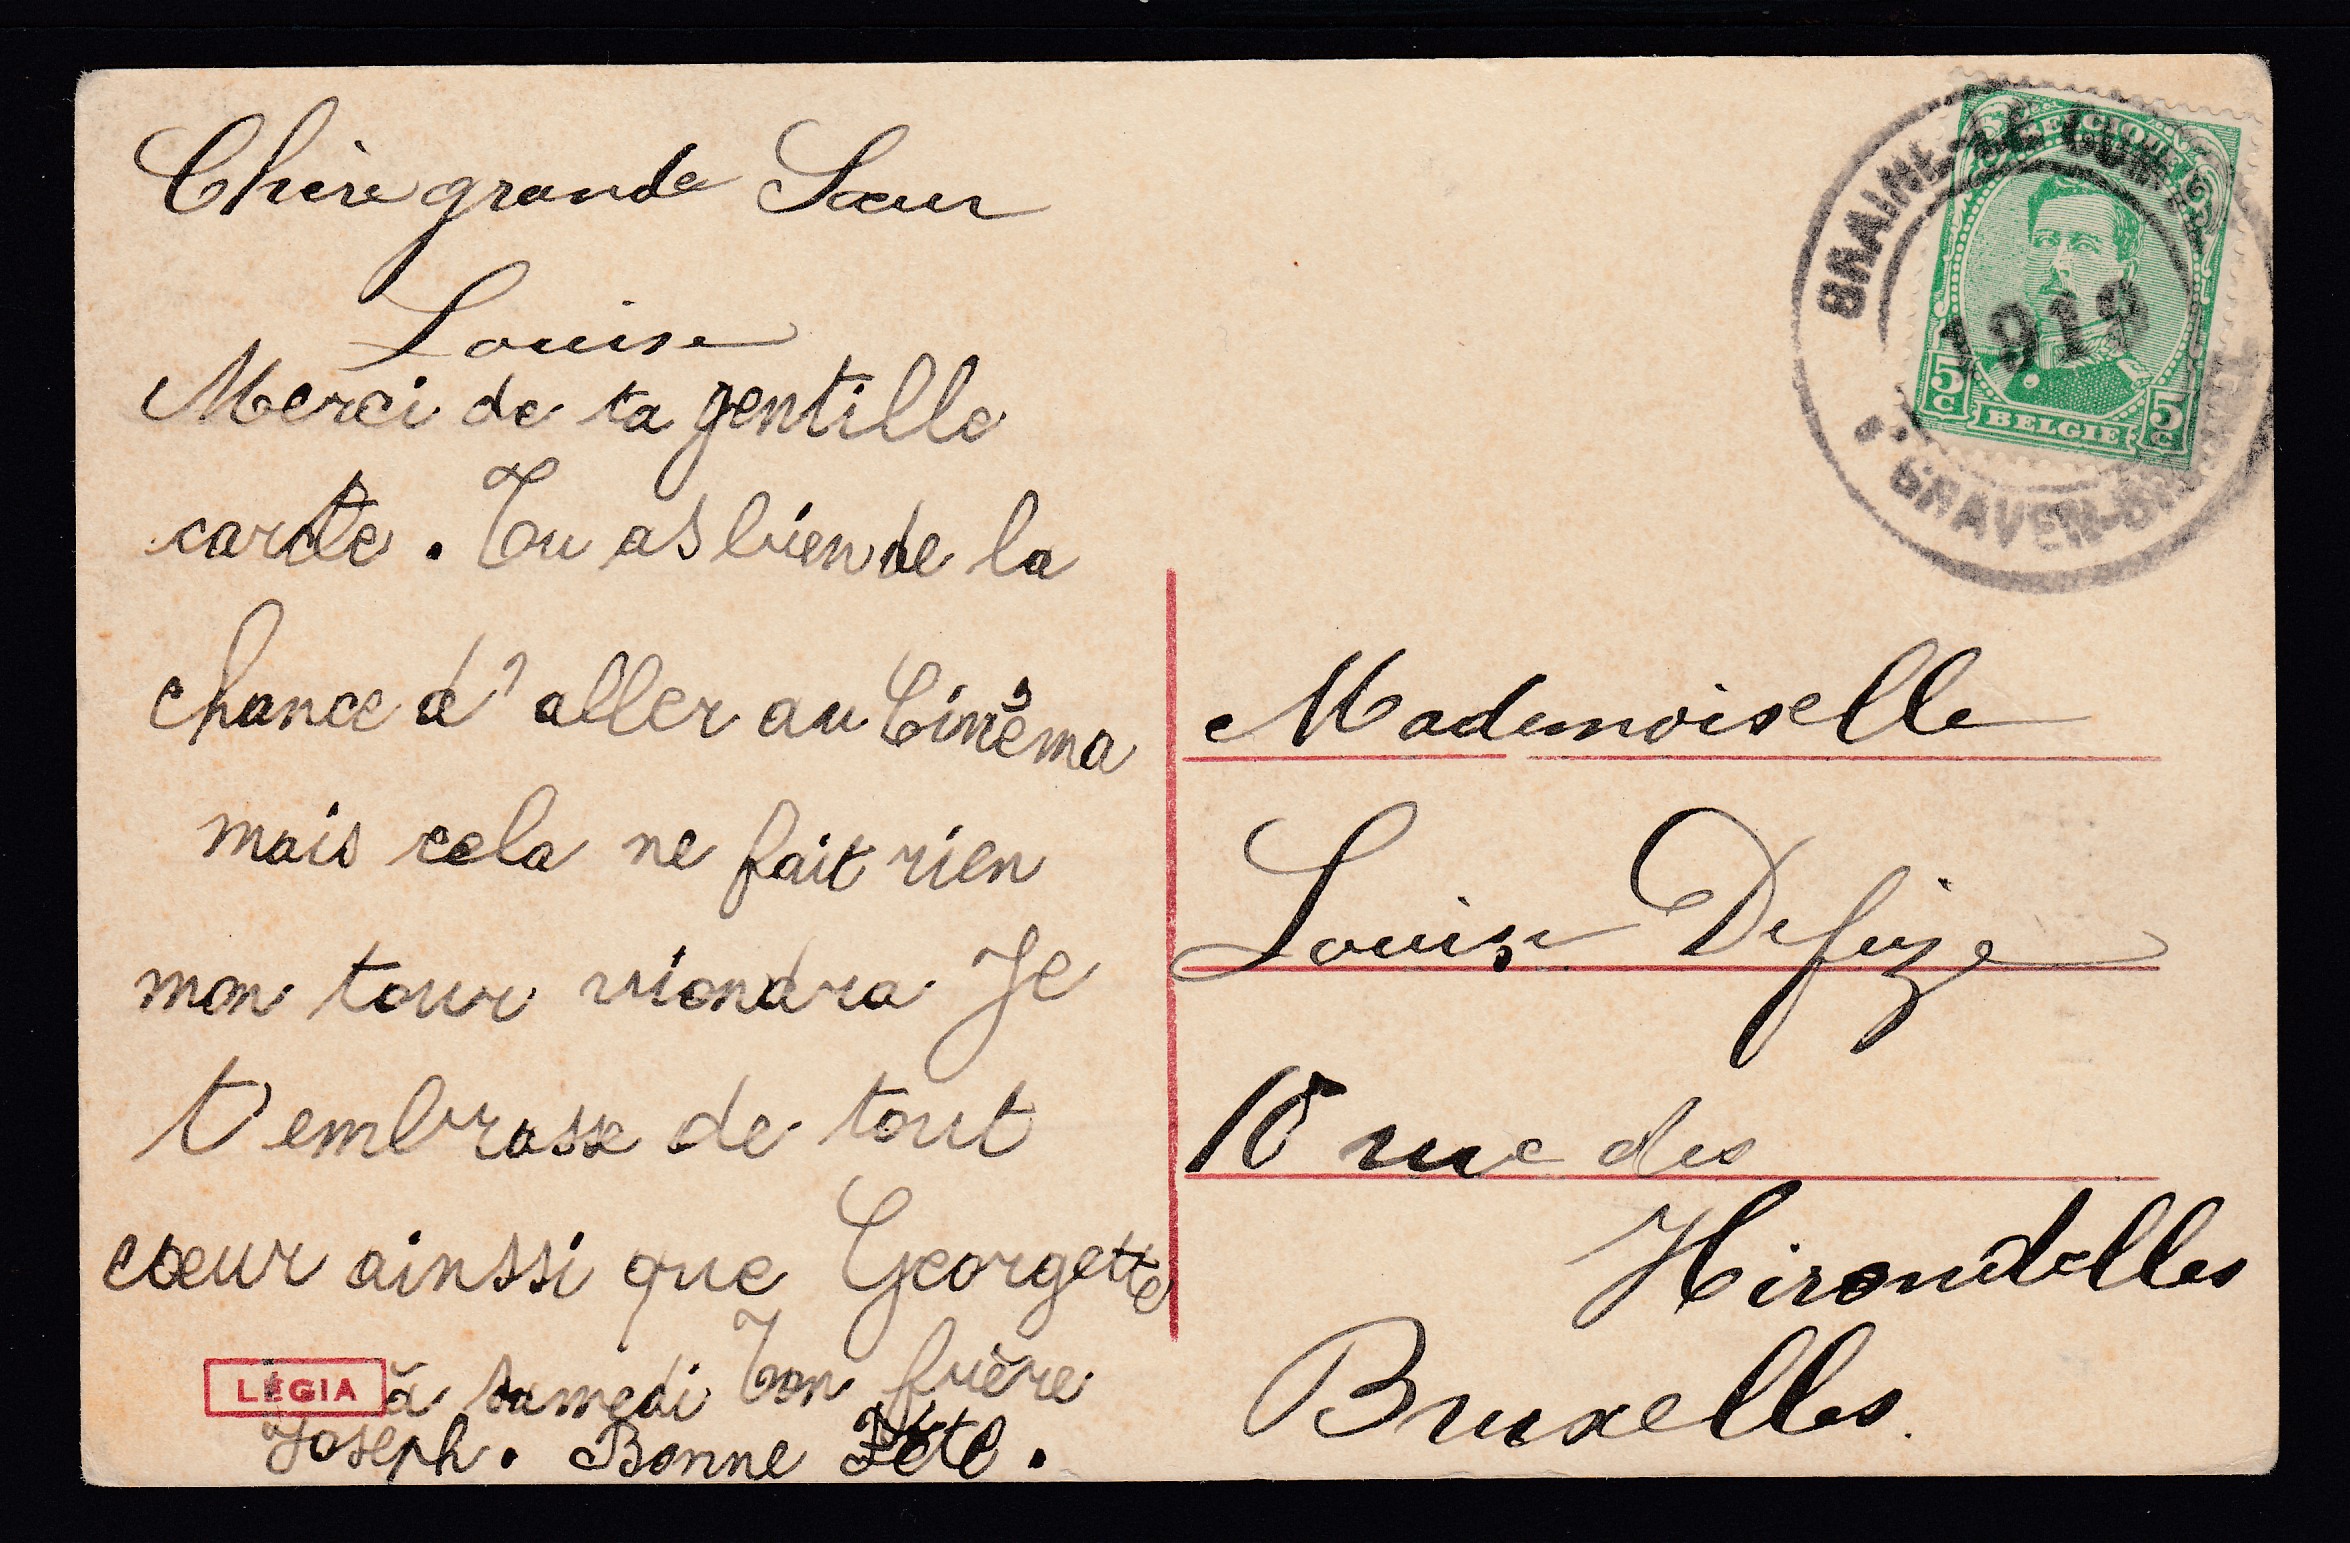 Chère grande Sœur
Louise
Merci de ta gentille
carte. Tu as bien de la
chance d'aller au Cinéma
mais cela ne fait rien
mon tour viendra Je
t'embrasse de tout
cœur ainssi que Georgette
à samedi Ton frère
Joseph. Bonne Fête.
LÉGIA
BRAINE-LE
1919
GRAVEN-BR
BELGIQUE
5c BELGIE 5c
Mademoiselle
Louise Defize
rue des
Hirondelles
Bruxelles.